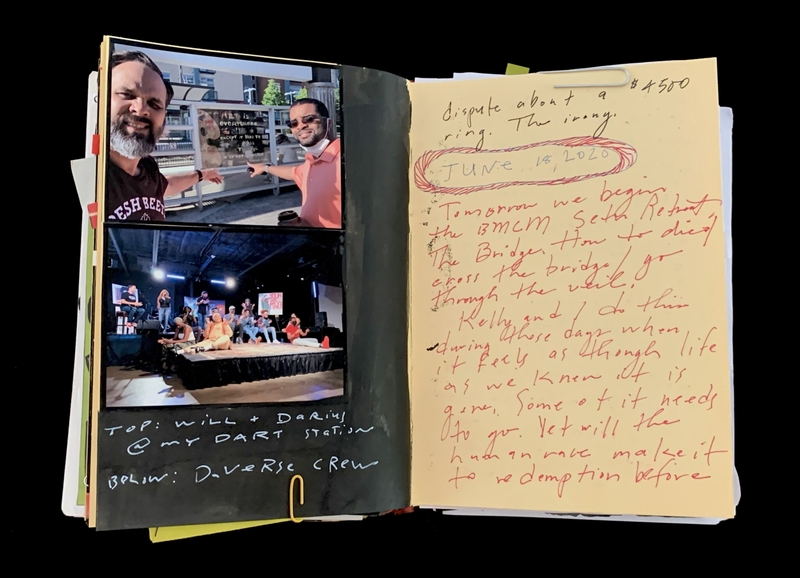 ESH BEE
ART IS
EVERYWHERE
TOP: Will + Darius
@ my DART Station
Below: DaVerse Crew
$4500
dispute about a
ring. The irony.
June 18, 2020
Tomorrow we begin
the BMCM Seth Retreat,
The Bridge. How to die/
cross the bridge/go
through the veil.
Kelly and I do this
during those days when
it feels as though life
as we knew it is
gone. Some of it needs
to go. Yet will the
human race make it
to redemption before